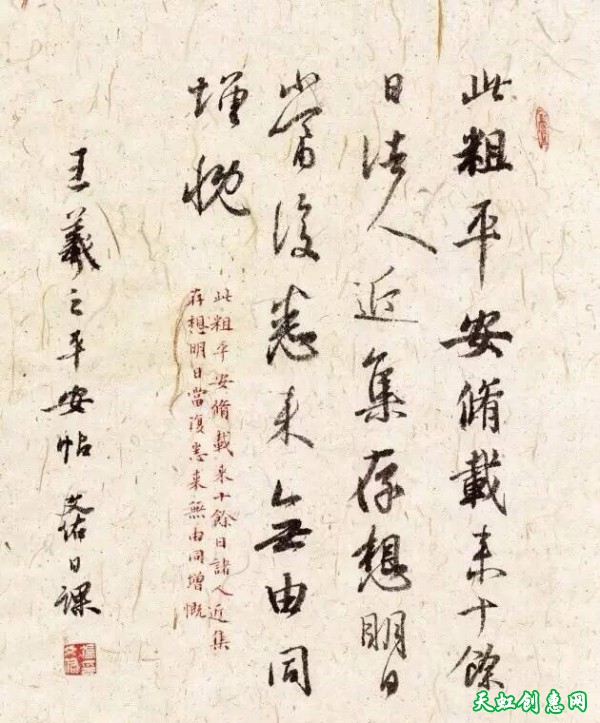 此粗平安脩載来十餘
日諸人近集存想明日
當復悉来無由同
增慨
此粗平安脩載来十餘日諸人近集
存想明日當復悉来無由同增慨
王羲之平安帖 日課
天虹创惠网